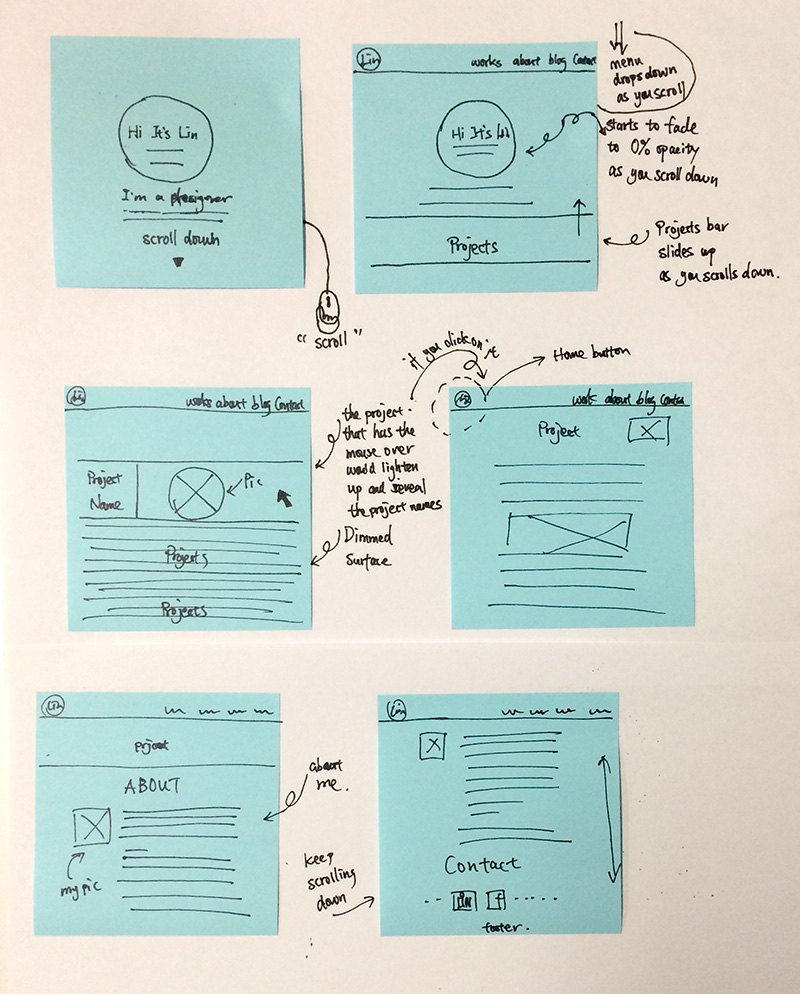 Hi It's Lin
I'm a
scroll down
"scroll"
Lin
works about blog Contact
Hi It's Lin
Projects
menu
drops down
as you scroll
starts to fade
to 0% opacity
as you scroll down
Projects bar
slides up
as you scrolls down.
Lin
works about blog Contact
Project
Name
Pic
Projects
Projects
the project
that has the
mouse over
would lighten
up and reveal
the project names
Dimmed
Surface
if you click on it
Home button
works about blog Contact
Project
Lin
Project
ABOUT
my pic
about
me.
keep
scrolling
down
Lin
Contact
in f
footer.